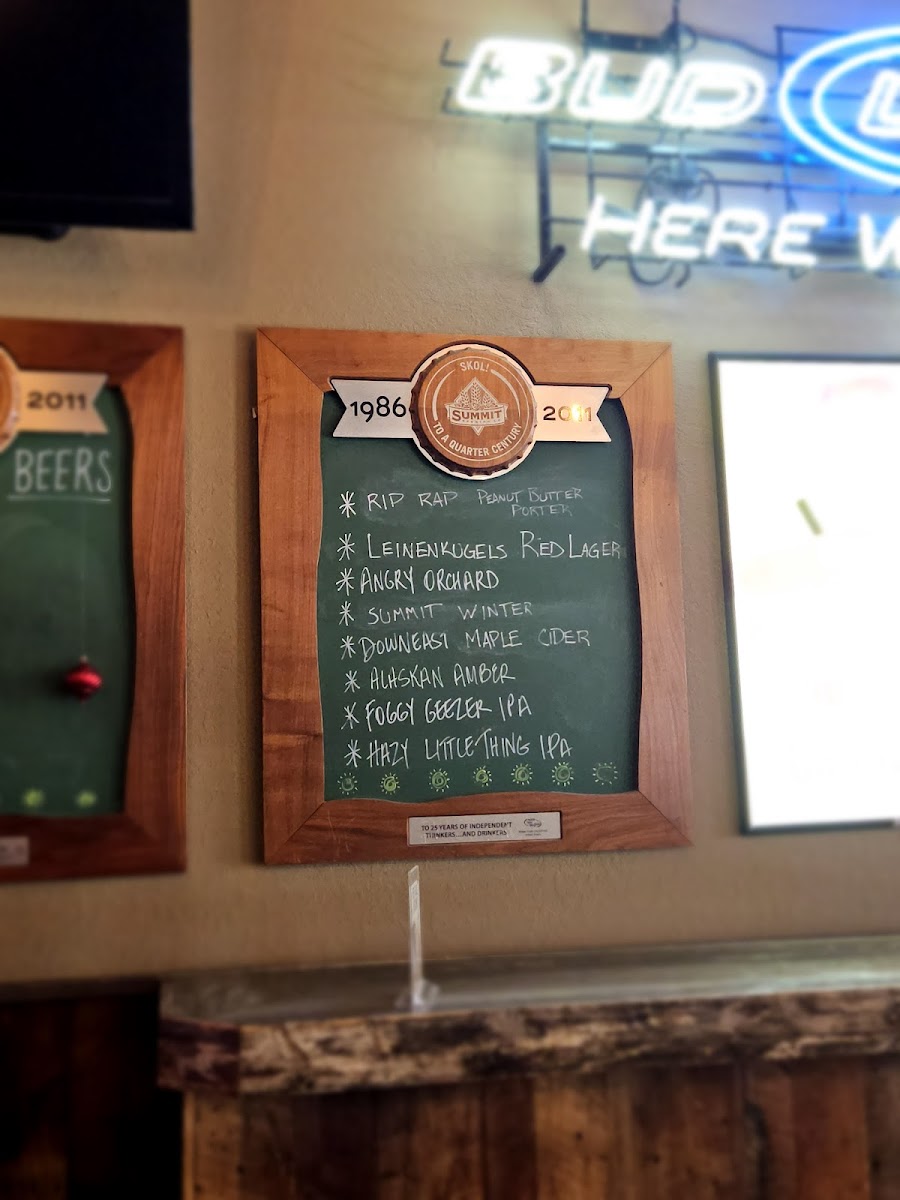 BUD
HERE
2011
BEERS
1986
SKOL!
SUMMIT
TO A QUARTER CENTURY
2011
* RIP RAP PEANUT BUTTER
PORTER
* LEINENKUGELS RED LAGER
* ANGRY ORCHARD
* SUMMIT WINTER
* DOWNEAST MAPLE CIDER
* ALASKAN AMBER
* FOGGY GEEZER IPA
* HAZY LITTLE THING IPA
TO 25 YEARS OF INDEPENDENT
THINKERS...AND DRINKERS